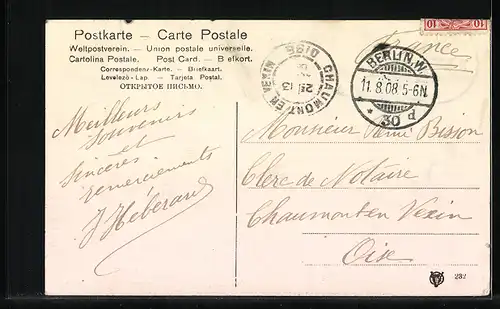 Postkarte – Carte Postale
Weltpostverein. – Union postale universelle.
Cartolina Postale. Post Card. – B efkort.
Correspondenz-Karte. – Briefkaart.
Levelező-Lap. – Tarjeta Postal.
ОТКРЫТОЕ ПИСЬМО.
10 10
France
CHAUMONT EN VEXIN OISE
BERLIN.W.
11.8.08.5-6N.
* 30 d
Meilleurs
souvenirs
et
sincères
remerciements
J Héberard
Monsieur Rémi Bission
Clerc de Notaire
Chaumont en Vexin
Oise
232